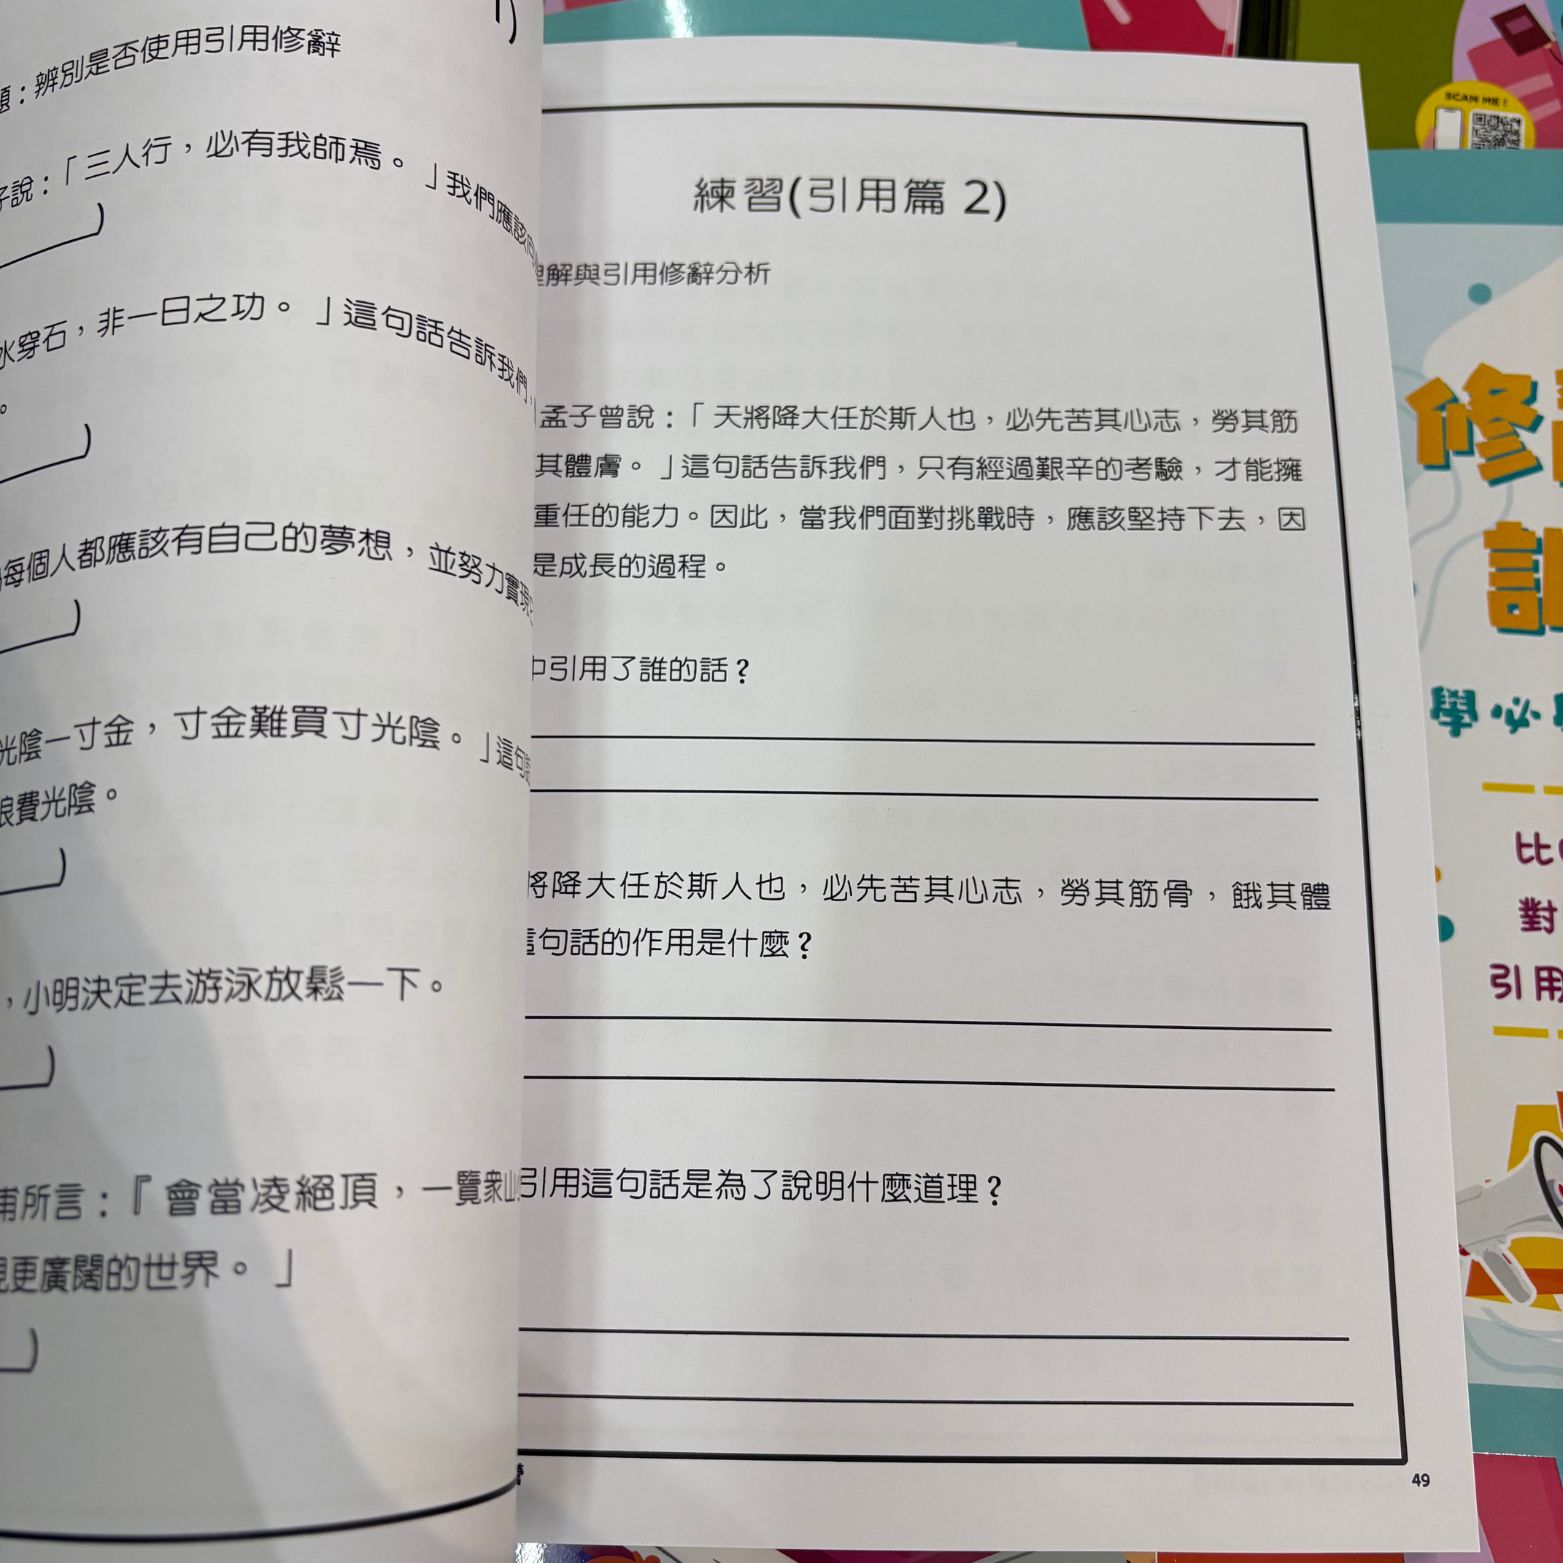 題：辨別是否使用引用修辭
子說：「三人行，必有我師焉。」我們應該
水穿石，非一日之功。」這句話告訴我們，
。
每個人都應該有自己的夢想，並努力實現
光陰一寸金，寸金難買寸光陰。」這句
浪費光陰。
，小明決定去游泳放鬆一下。
甫所言：『會當凌絕頂，一覽眾山
更廣闊的世界。」
練習(引用篇 2)
理解與引用修辭分析
孟子曾說：「天將降大任於斯人也，必先苦其心志，勞其筋
其體膚。」這句話告訴我們，只有經過艱辛的考驗，才能擁
重任的能力。因此，當我們面對挑戰時，應該堅持下去，因
是成長的過程。
中引用了誰的話？
將降大任於斯人也，必先苦其心志，勞其筋骨，餓其體
這句話的作用是什麼？
引用這句話是為了說明什麼道理？
49
SCAN ME !
修
訓
學必
比
對
引用